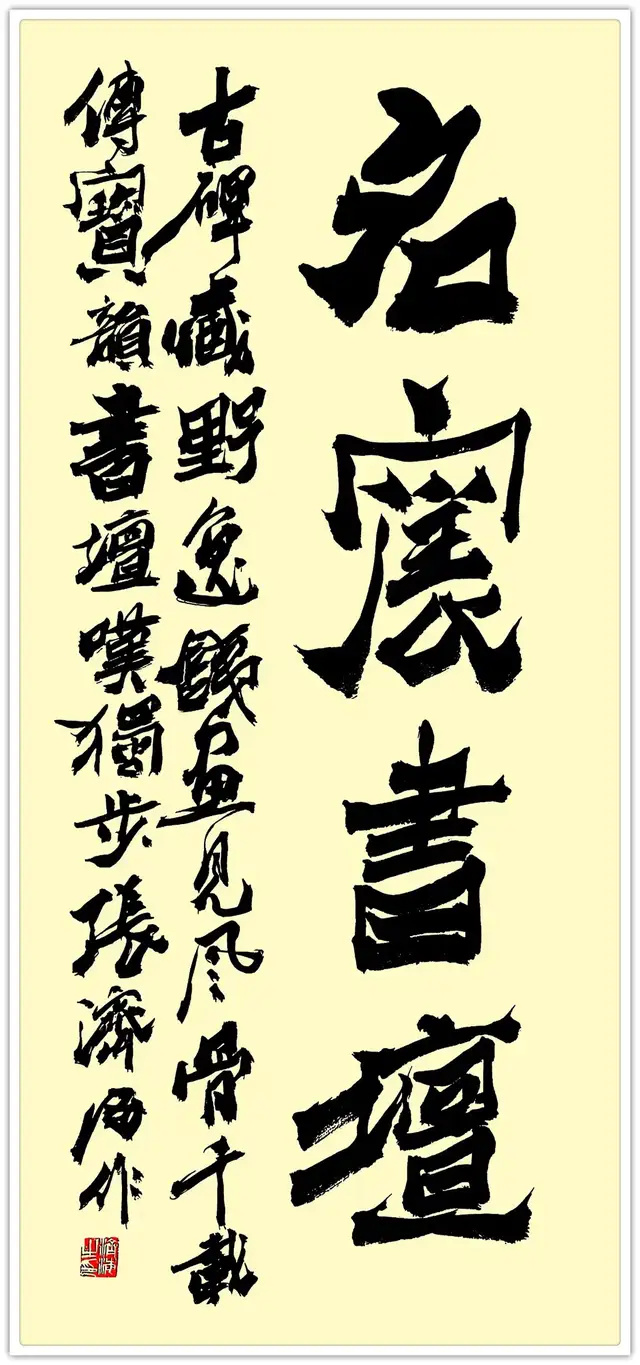 名震書壇
古碑藏野逸鐵畫見风骨千載
傳寶韻書壇嘆獨步張濟海作